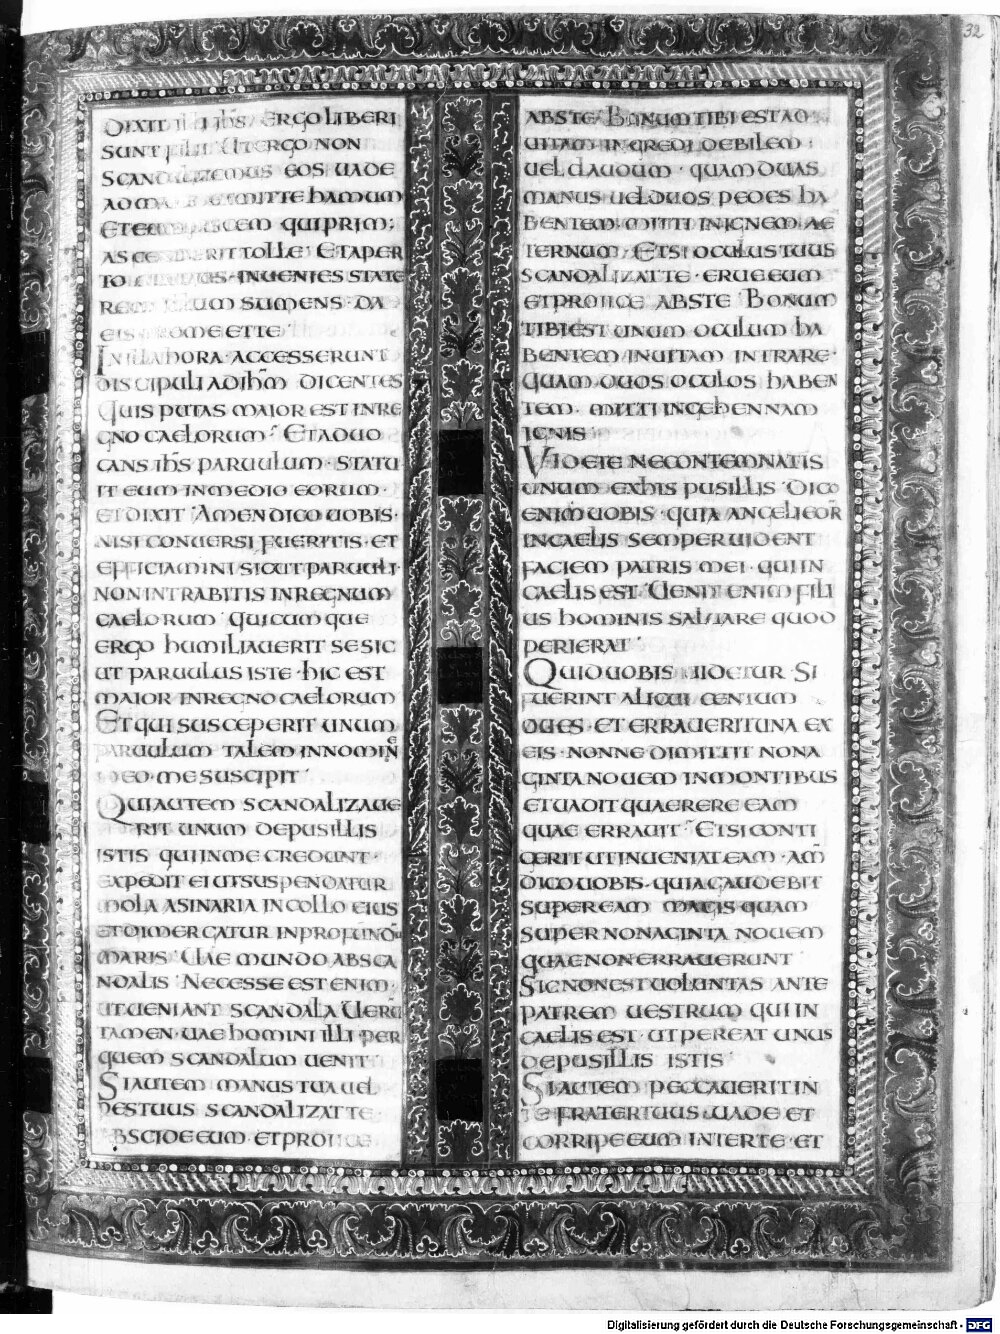 32
DIXIT ILLI IHS ERGO LIBERI
SUNT FILII UT ERGO NON
SCANDALIZEMUS EOS UADE
AD MARE ET MITTE HAMUM
ET EUM PISCEM QUI PRIM;
ASCENDERIT TOLLE ET APER
TO ORE EIUS · INUENIES STATE
REM ILLUM SUMENS · DA
EIS PRO ME ET TE
IN ILLA HORA ACCESSERUNT
DISCIPULI AD IHM DICENTES
QUIS PUTAS MAIOR EST IN RE
GNO CAELORUM ET ADUO
CANS IHS PARUULUM · STATU
IT EUM IN MEDIO EORUM ·
ET DIXIT AMEN DICO UOBIS ·
NISI CONUERSI FUERITIS · ET
EFFICIAMINI SICUT PARUULI ·
NON INTRABITIS IN REGNUM
CAELORUM QUICUMQUE
ERGO HUMILIAUERIT SE SIC
UT PARUULUS ISTE · HIC EST
MAIOR IN REGNO CAELORUM
ET QUI SUSCEPERIT UNUM
PARUULUM TALEM IN NOMINE
MEO · ME SUSCIPIT
QUI AUTEM SCANDALIZAUE
RIT UNUM DE PUSILLIS
ISTIS QUI IN ME CREDUNT ·
EXPEDIT EI UT SUSPENDATUR
MOLA ASINARIA IN COLLO EIUS
ET DIMERGATUR IN PROFUNDU
MARIS UAE MUNDO AB SCA
NDALIS NECESSE EST ENIM
UT UENIANT SCANDALA UERU
TAMEN · UAE HOMINI ILLI PER
QUEM SCANDALUM UENIT
SI AUTEM MANUS TUA UEL
PES TUUS SCANDALIZAT TE ·
ABSCIDE EUM · ET PROIICE
ABS TE BONUM TIBI EST AD
UITAM INGREDI DEBILEM ·
UEL CLAUDUM · QUAM DUAS
MANUS UEL DUOS PEDES HA
BENTEM MITTI IN IGNEM AE
TERNUM · ET SI OCULUS TUUS
SCANDALIZAT TE · ERUE EUM
ET PROIICE ABS TE BONUM
TIBI EST UNUM OCULUM HA
BENTEM IN UITAM INTRARE ·
QUAM DUOS OCULOS HABEN
TEM · MITTI IN GEHENNAM
IGNIS
VIDETE NE CONTEMNATIS
UNUM EX HIS PUSILLIS DICO
ENIM UOBIS · QUIA ANGELI EOR
IN CAELIS SEMPER UIDENT
FACIEM PATRIS MEI · QUI IN
CAELIS EST UENIT ENIM FILI
US HOMINIS SALUARE QUOD
PERIERAT
QUID UOBIS UIDETUR · SI
FUERINT ALICUI CENTUM
OUES · ET ERRAUERIT UNA EX
EIS · NONNE DIMITTIT NONA
GINTA NOUEM IN MONTIBUS
ET UADIT QUAERERE EAM
QUAE ERRAUIT ET SI CONTI
GERIT UT INUENIAT EAM · AM
DICO UOBIS · QUIA GAUDEBIT
SUPER EAM MAGIS QUAM
SUPER NONAGINTA NOUEM
QUAE NON ERRAUERUNT
SIC NON EST UOLUNTAS ANTE
PATREM UESTRUM QUI IN
CAELIS EST · UT PEREAT UNUS
DE PUSILLIS ISTIS
SI AUTEM PECCAUERIT IN
TE FRATER TUUS UADE ET
CORRIPE EUM INTER TE · ET
Digitalisierung gefördert durch die Deutsche Forschungsgemeinschaft - DFG